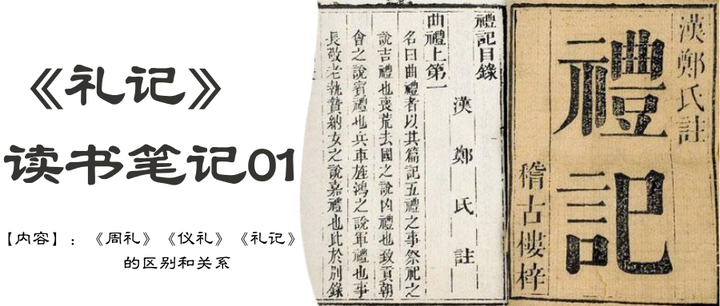 《礼记》
读书笔记01
【内容】:《周礼》《仪礼》《礼记》
的区别和关系
禮記目錄
曲禮上第一
漢鄭氏註
名曰曲禮者以其篇記五禮之事祭祀之
說吉禮也喪荒去國之說凶禮也致貢朝
會之說賓禮也兵車旌鴻之說軍禮也事
長敬老執贄納女之說嘉禮也此於別錄
漢鄭氏註
禮記
稽古樓梓